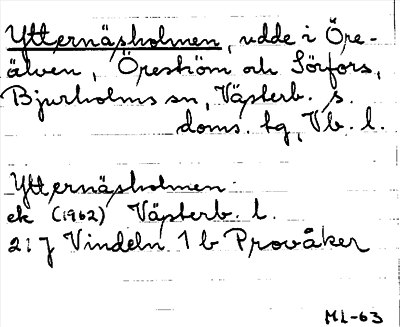 Ytternäsholmen, udde i Öre-
älven, Öreström och Sörfors,
Bjurholms sn, Västerb. s.
doms. tg, Vb. l.
Ytternäsholmen
ek (1962) Västerb. l.
21 J Vindeln 1 b Provåker
ML-63